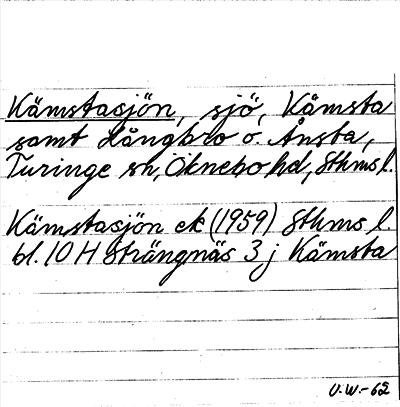 Kämstasjön, sjö, Kämsta
samt Långbro o. Ånsta,
Turinge sn, Öknebo hd, Sthms l.
Kämstasjön ek (1959) Sthms l.
bl. 10 H Strängnäs 3 j Kämsta
U.W.-62